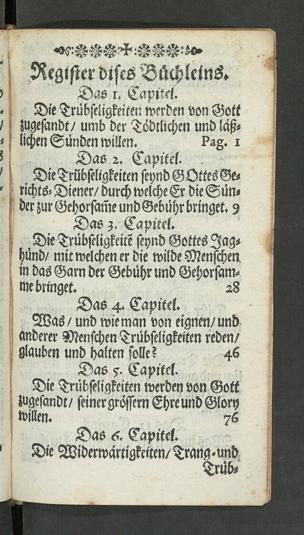 Register dises Büchleins.
Das 1. Capitel.
Die Trübseligkeiten werden von Gott
zugesandt/ umb der Tödtlichen und läß-
lichen Sünden willen. Pag. 1
Das 2. Capitel.
Die Trübseligkeiten seynd GOttes Ge-
richts-Diener/ durch welche Er die Sün-
der zur Gehorsam̃e und Gebühr bringet. 9
Das 3. Capitel.
Die Trübseligkeitẽ seynd Gottes Jag-
hünd/ mit welchen er die wilde Menschen
in das Garn der Gebühr und Gehorsam-
me bringet. 28
Das 4. Capitel.
Was/ und wie man von eignen/ und
anderer Menschen Trübseligkeiten reden/
glauben und halten solle? 46
Das 5. Capitel.
Die Trübseligkeiten werden von Gott
zugesandt/ seiner grössern Ehre und Glory
willen. 76
Das 6. Capitel.
Die Widerwärtigkeiten/ Trang- und
Trüb-